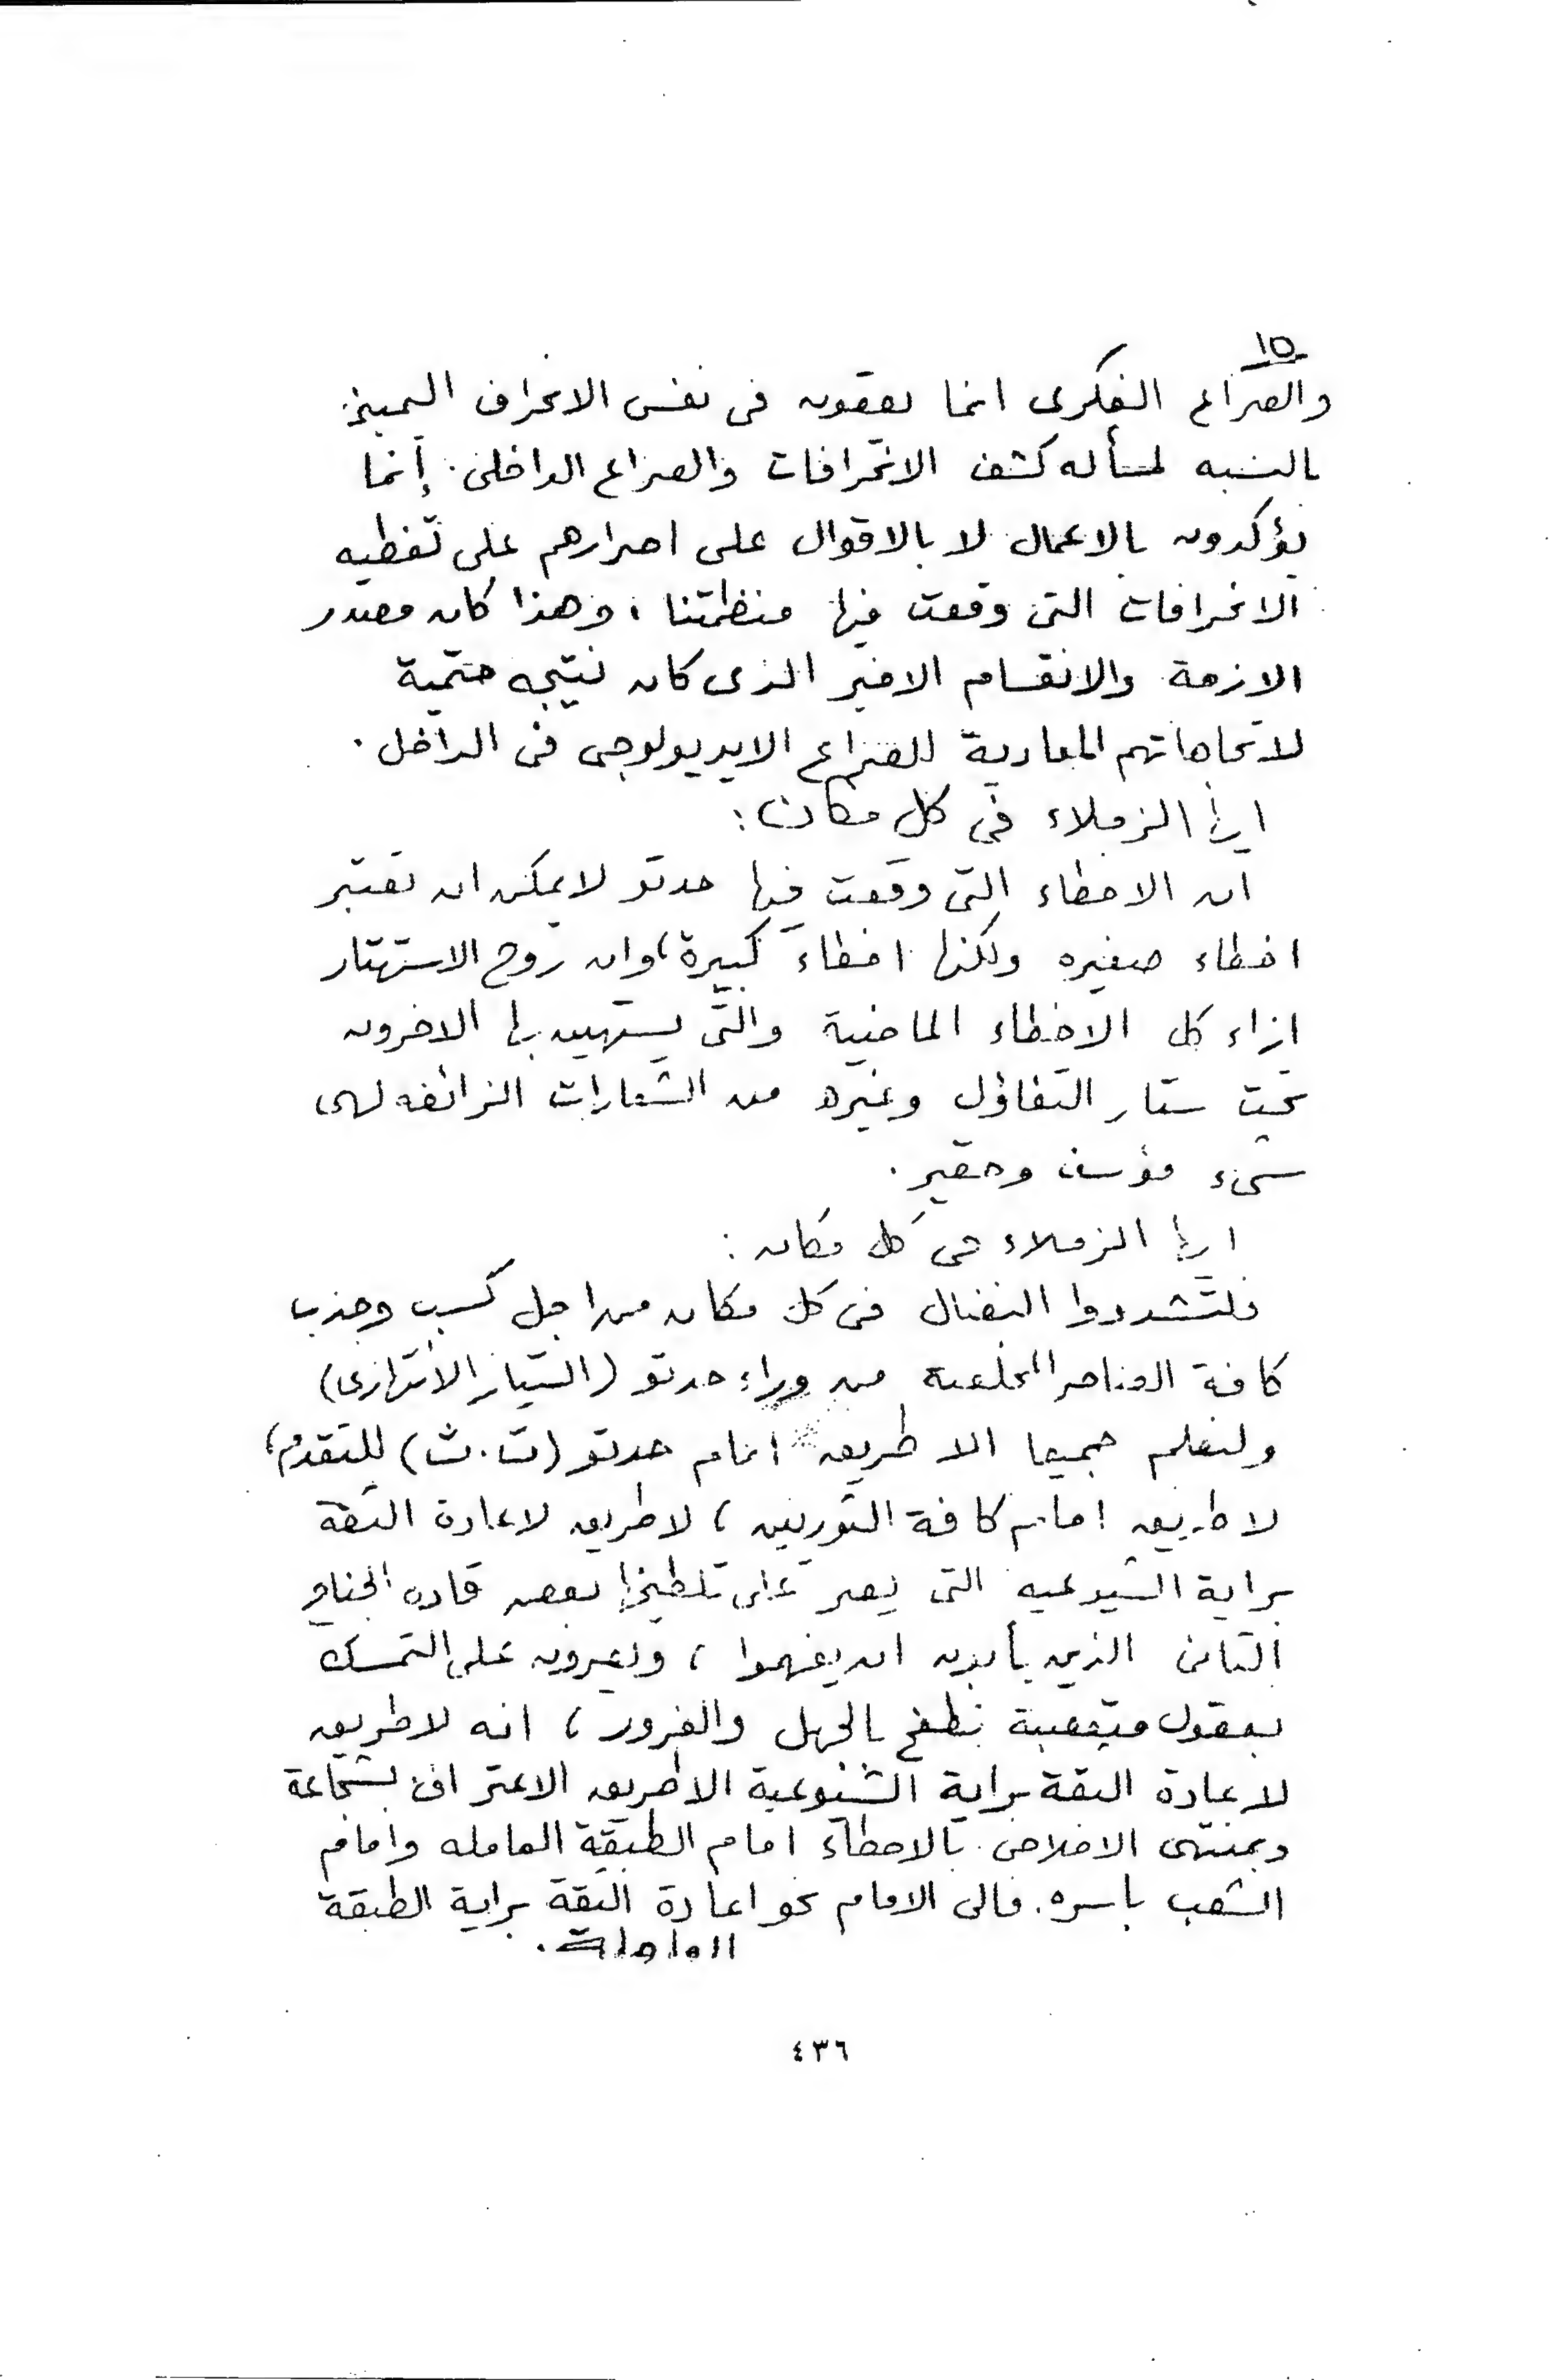 ١٥
والصراع الفكرى انما يقعون فى نفس الانحراف اليمينى
بالنسبه لمسأله كشف الانحرافات والصراع الداخلى. إنما
يؤكدون بالاعمال لا بالاقوال على اصرارهم على تغطيه
الانحرافات التى وقعت فيها منظمتنا، وهذا كان مصدر
الازمة والانقسام الاخير الذى كان نتيجه حتمية
لاتجاهاتهم المعادية للصراع الايديولوجى فى الداخل.
ايها الزملاء فى كل مكان:
ان الاخطاء التى وقعت فيها حدتو لا يمكن ان تعتبر
اخطاء صغيره ولكنها اخطاء كبيرة، وان روح الاستهتار
ازاء كل الاخطاء الماضية والتى يستهين بها الاخرون
تحت ستار التفاؤل وغيره من الشعارات الزائفه لهى
شىء مؤسف وحقير.
ايها الزملاء فى كل مكان:
فلتشددوا النضال فى كل مكان من اجل كسب وجذب
كافة العناصر المخلصة من وراء حدتو (التيار الانتهازى)
ولنعلم جميعا الا طريق امام حدتو (ت.ث) للتقدم،
لا طريق امام كافة الثوريين، لا طريق لاعادة الثقة
براية الشيوعيه التى يصر على تلطيخها بعض قاده الجناح
الثانى الذين يأبون ان يفهموا، ويصرون على التمسك
بعقول متعصبة تطفح بالجهل والغرور، انه لا طريق
لاعادة الثقة براية الشيوعية الا طريق الاعتراف بشجاعة
وبمنتهى الاخلاص بالاخطاء امام الطبقة العامله وامام
الشعب باسره. فالى الامام نحو اعادة الثقة براية الطبقة
العاملة.
٤٣٦